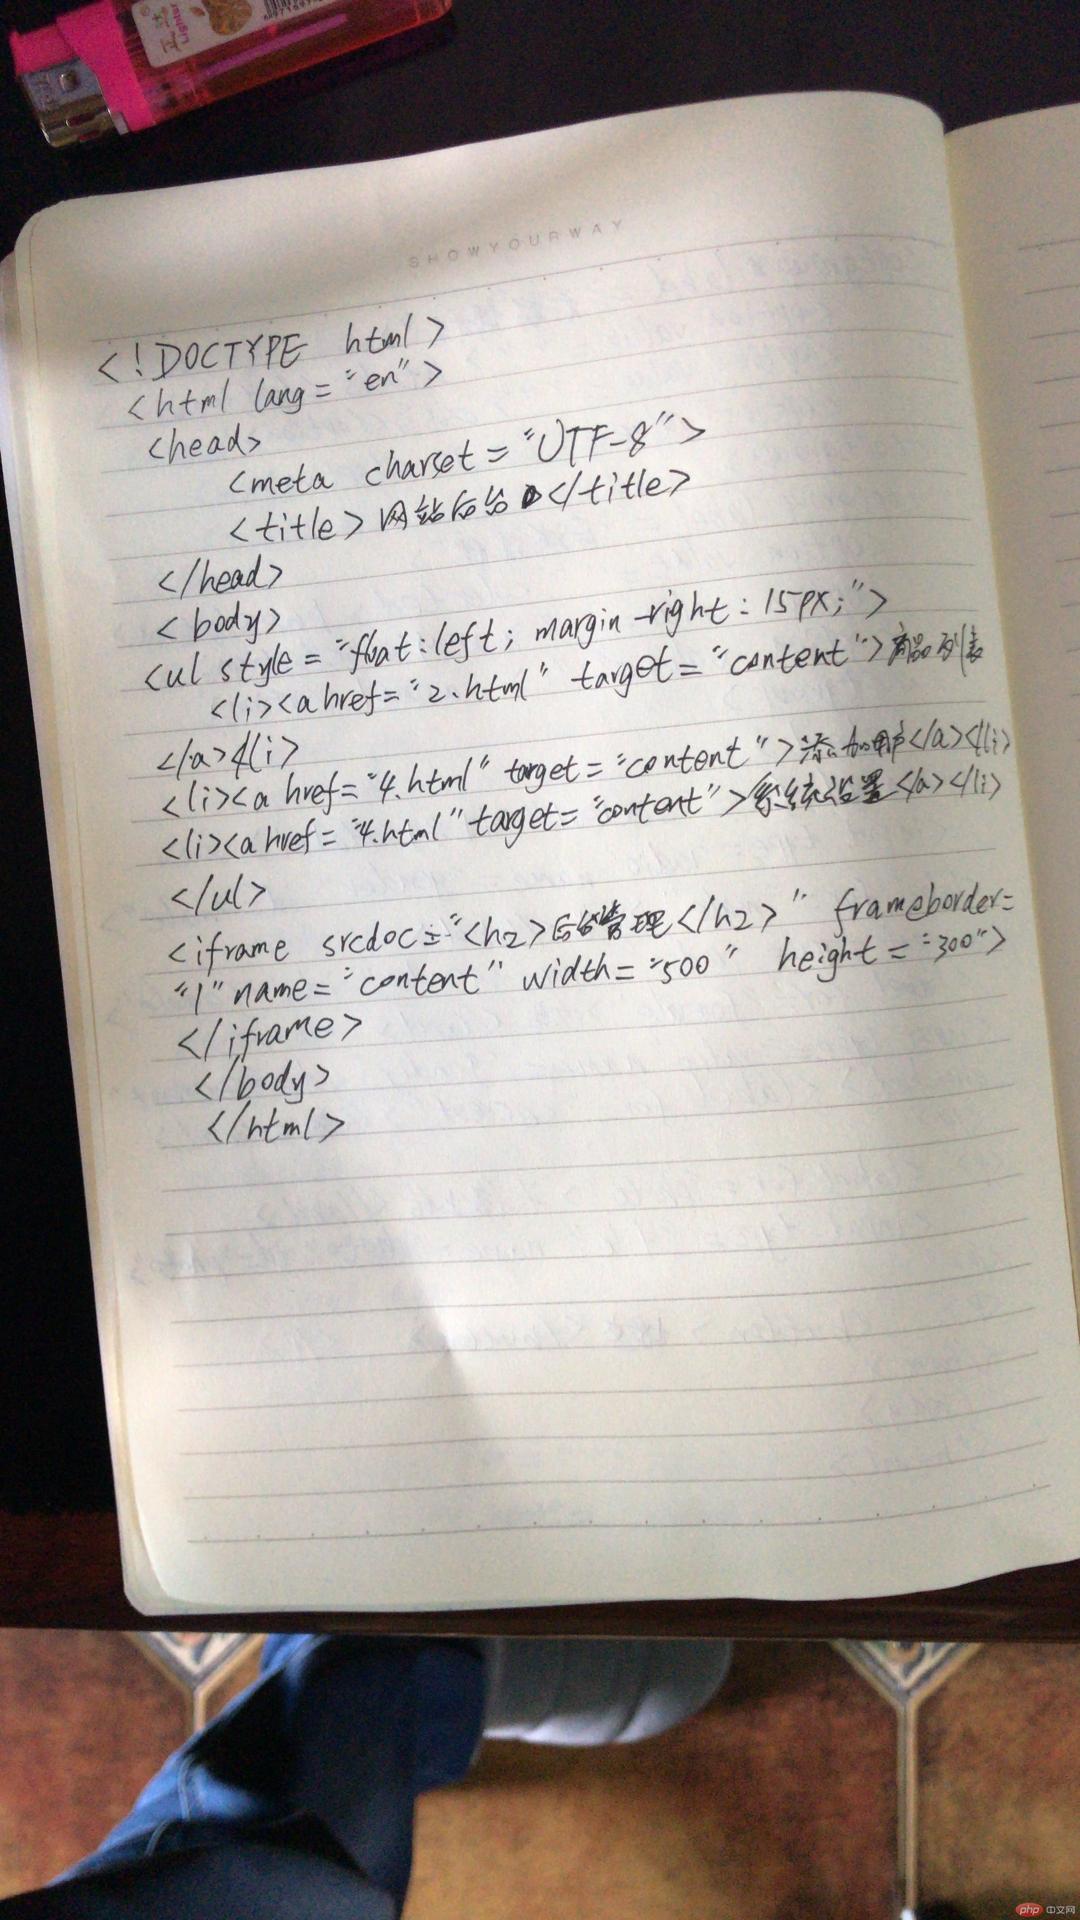 Lighter
SHOWYOURWAY
<!DOCTYPE html>
<html lang="en">
<head>
<meta charset="UTF-8">
<title>网站后台</title>
</head>
<body>
<ul style="float:left; margin-right:15px;">
<li><a href="2.html" target="content">商品列表
</a></li>
<li><a href="4.html" target="content">添加用户</a></li>
<li><a href="4.html" target="content">系统设置</a></li>
</ul>
<iframe srcdoc="<h2>后台管理</h2>" frameborder=
"1" name="content" width="500" height="300">
</iframe>
</body>
</html>
php 中文网